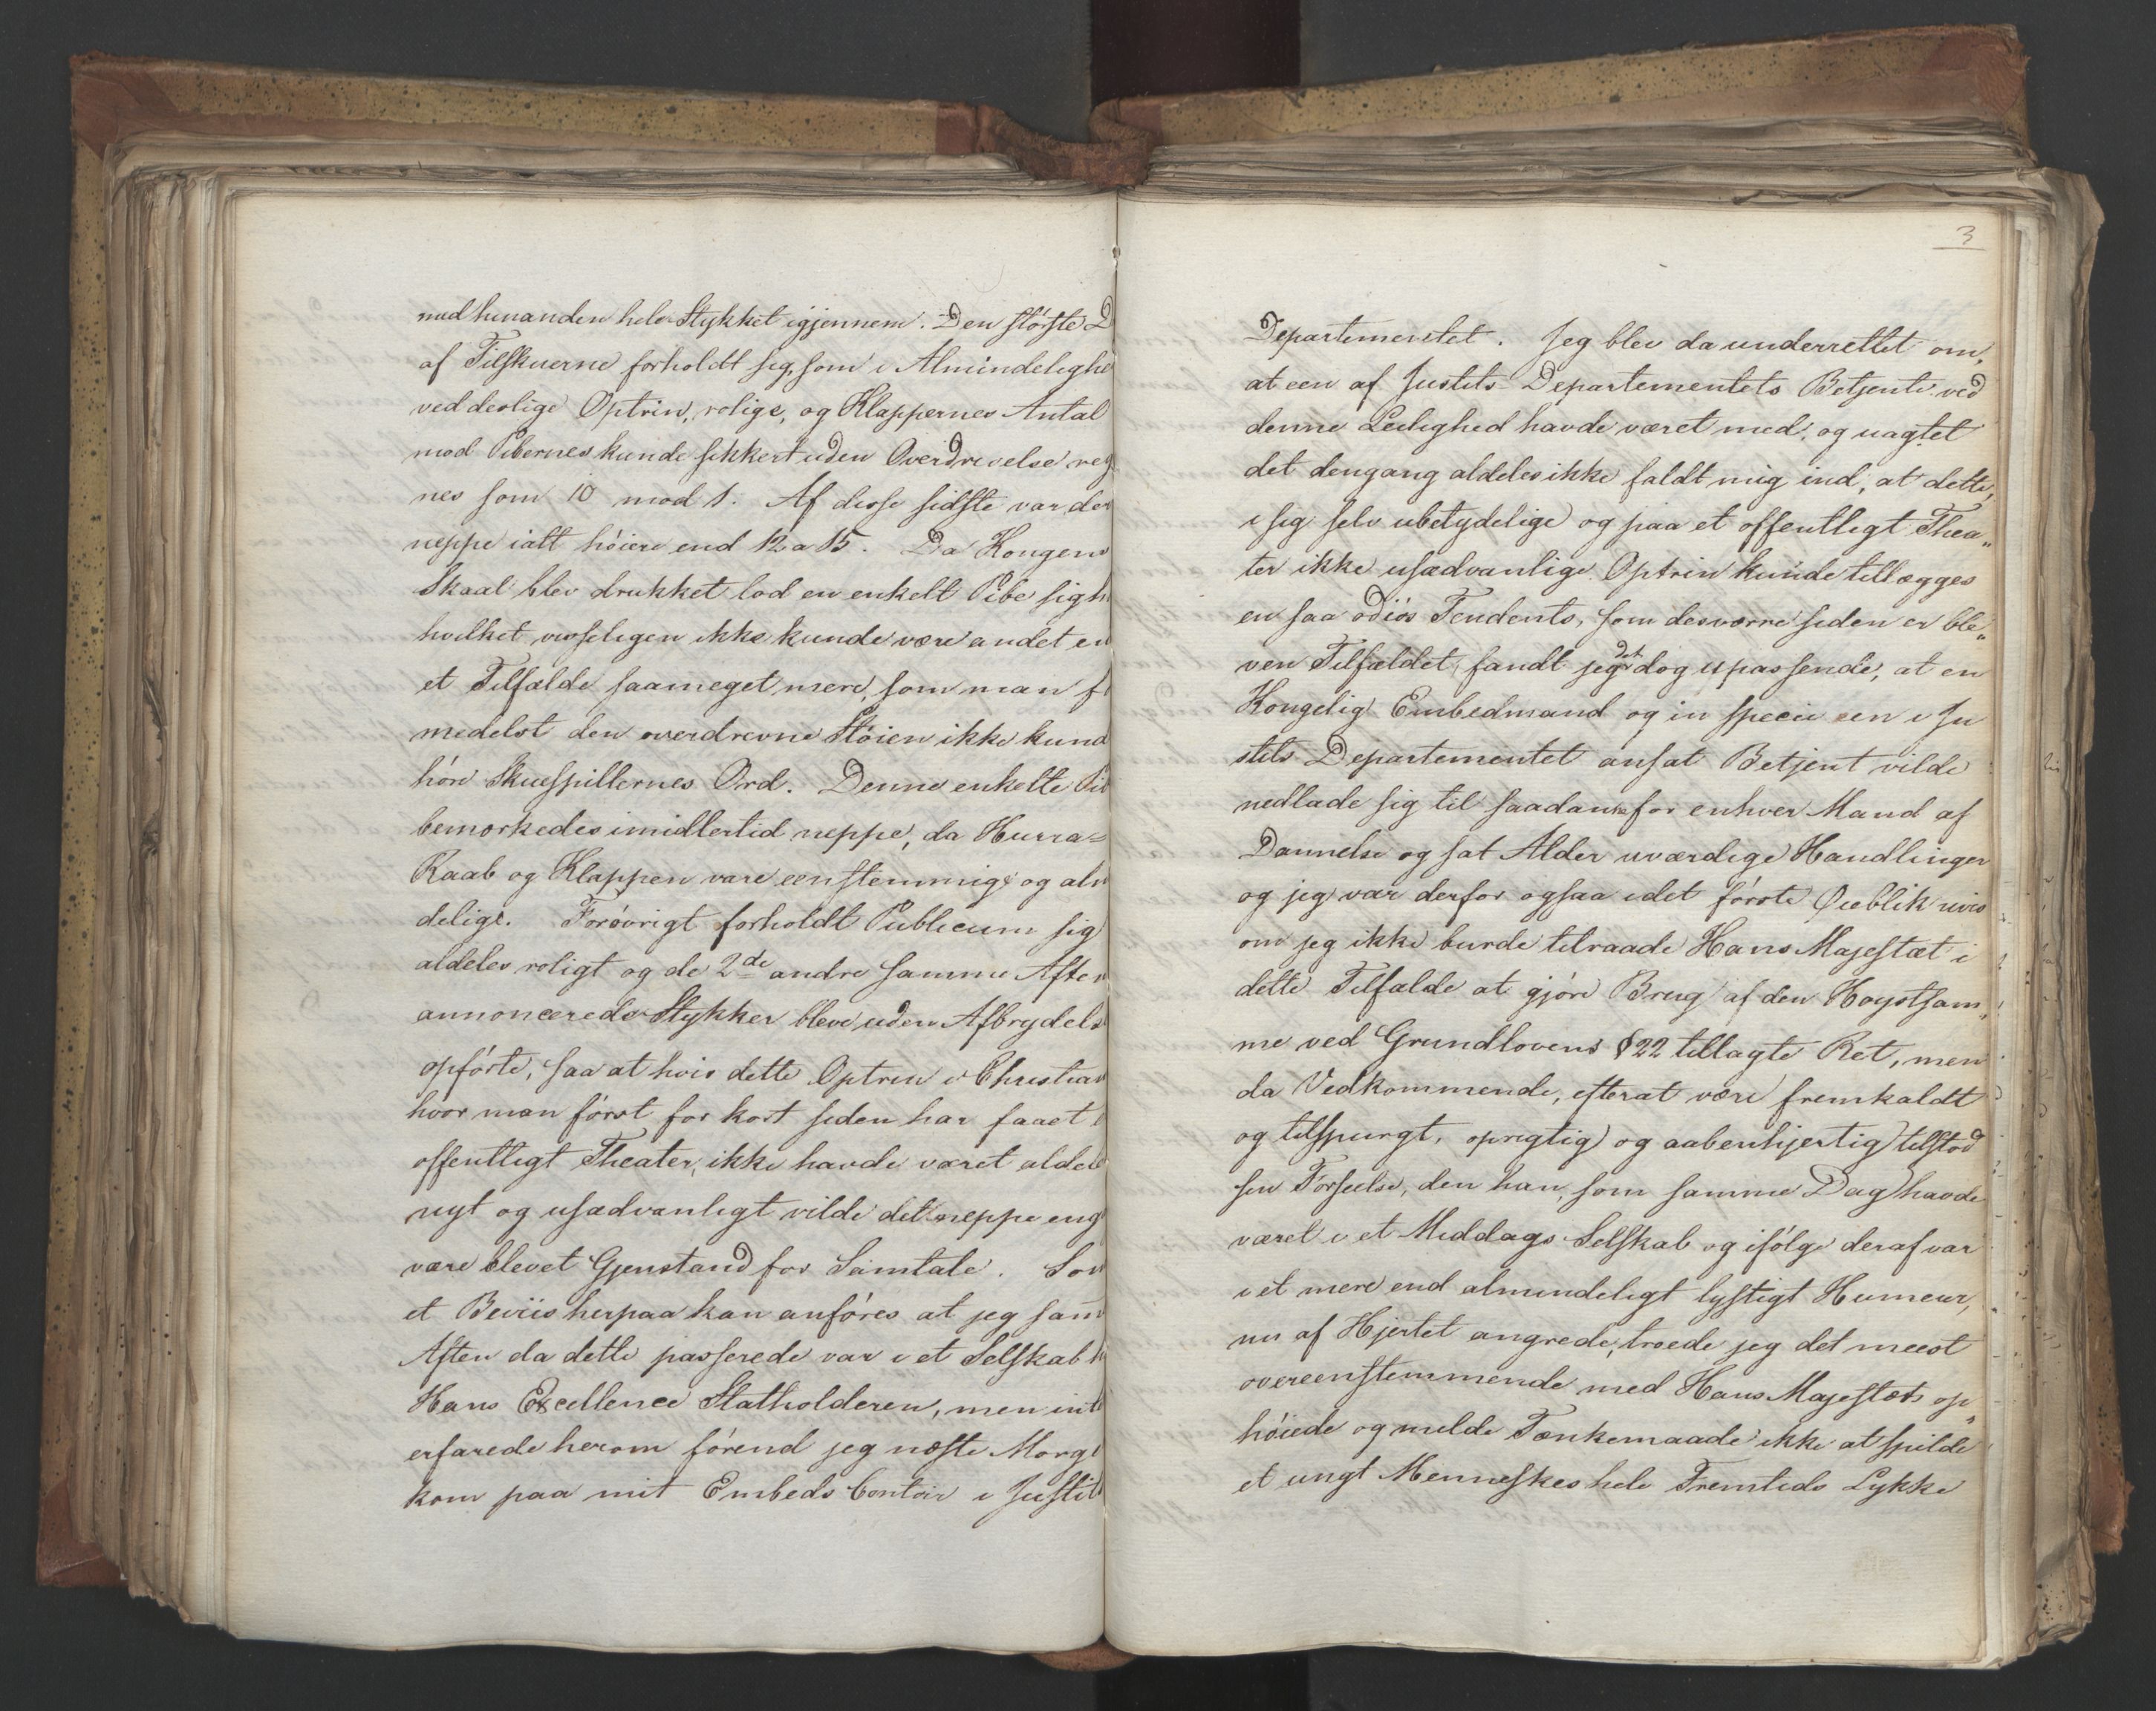 med hinanden hele Stykket igjennem. Den störste D
af Tilskuerne forholdt sig, som i Almindelighe
ved deslige Optrin, rolige, og Klappernes Antal
mod Pibernes kunde sikkert uden Overdrivelse reg
nes som 10 mod 1. Af disse sidste var der
neppe ialt höiere end 12 a 15. Da Kongens
Skaal blev drukket lod en enkelt Pibe sig h
hvilket visseligen ikke kunde være andet en
et Tilfælde saameget mere, som man f
medelst den overdrevne Stöien ikke kund
höre Skuespillernes Ord. Denne enkelte Pib
bemærkedes imidlertid neppe, da Hurra=
Raab og Klappen vare eenstemmige og alm
delige. Forövrigt forholdt Publicum sig
aldeles roligt og de 2de andre samme Aften
annoncerede Stykker bleve uden Afbrydels
opförte, saa at hvis dette Optrin i Christian
hvor man först for kort siden har faaet
offentligt Theater, ikke havde været aldele
nyt og usædvanligt vilde det neppe eng
være blevet Gjenstand for Samtale. Som
et Beviis herpaa kan anföres at jeg sam̄
Aften da dette passerede var i et Selskab h
Hans Excellence Statholderen, men int
erfarede herom förend jeg næste Morge
kom paa mit Embeds Contoir i Justits
3
Departementet. Jeg blev da underrettet om,
at een af Justits-Departementets Betjente ved
denne Leilighed havde været med, og uagtet
det dengang aldeles ikke faldt mig ind, at dette,
i sig selv ubetydelige og paa et offentligt Thea„
ter ikke usædvanlige Optrin kunde tillægges
en saa odiös Tendents, som desværre siden er ble„
ven Tilfældet, fandt jeg det dog upassende, at en
Kongelig Embedmand og in specie een i Ju
stits Departementet ansat Betjent vilde
nedlade sig til saadanne for enhver Mand af
Dannelse og sat Alder uværdige Handlinger
og jeg var derfor ogsaa i det förste Öieblik uvis
om jeg ikke burde tilraade Hans Majestæt i
dette Tilfælde at gjöre Brug af den Höystsam„
me ved Grundlovens § 22 tillagte Ret, men
da Vedkommende, efterat være fremkaldt
og tilspurgt, oprigtig og aabenhjertig tilstod
sin Forseelse, den han, som samme Dag havde
været i et Middags Selskab og ifölge deraf var
i et mere end almindeligt lystigt Humeur,
nu af Hjertet angrede, troede jeg det meest
overeenstemmende med Hans Majestæts op„
höiede og milde Tænkemaade ikke at spilde
et ungt Menneskes hele Fremtids Lykke